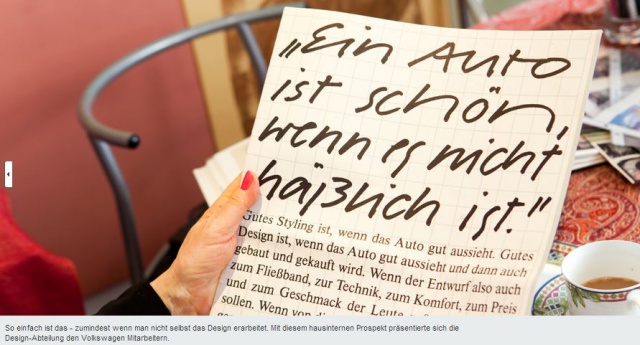 „Ein Auto
ist schön,
wenn es nicht
häßlich ist."
Gutes Styling ist, wenn das Auto gut aussieht. Gutes
Design ist, wenn das Auto gut aussieht und dann auch
gebaut und gekauft wird. Wenn der Entwurf also auch
zum Fließband, zur Technik, zum Komfort, zum Preis
und zum Geschmack der Leute
sollen. Wenn von
So einfach ist das - zumindest wenn man nicht selbst das Design erarbeitet. Mit diesem hausinternen Prospekt präsentierte sich die
Design-Abteilung den Volkswagen Mitarbeitern.